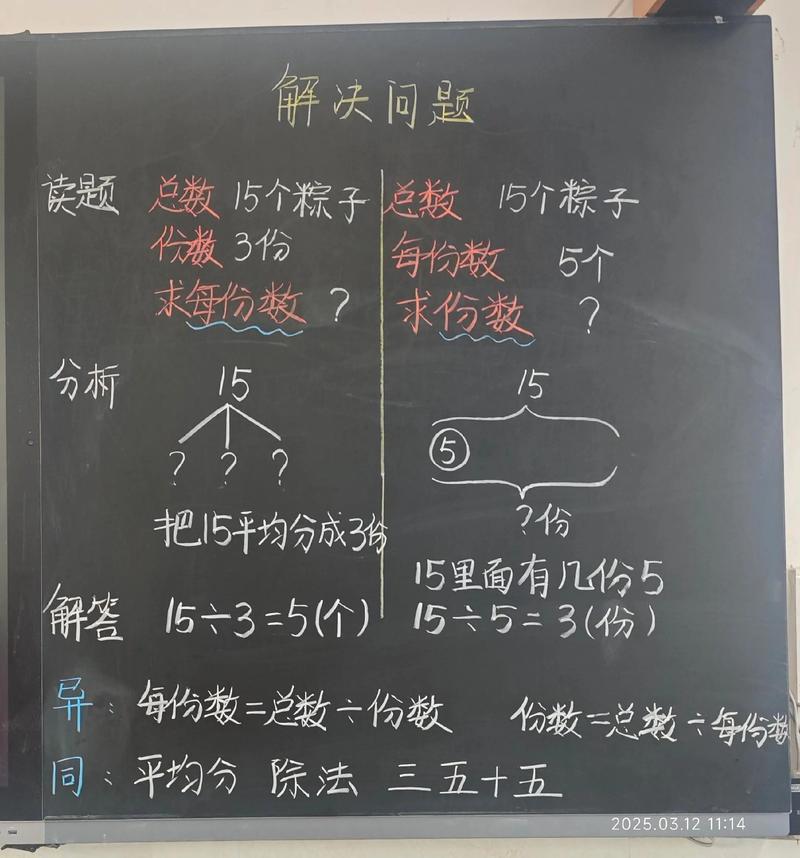 解决问题
读题 总数 15个粽子
份数 3份
求每份数 ？
总数 15个粽子
每份数 5个
求份数 ？
分析 15
？ ？ ？
把15平均分成3份
15
5
？份
15里面有几份5
解答 15÷3=5(个)
15÷5=3(份)
异：每份数=总数÷份数 份数=总数÷每份数
同：平均分 除法 三五十五
2025.03.12 11:14